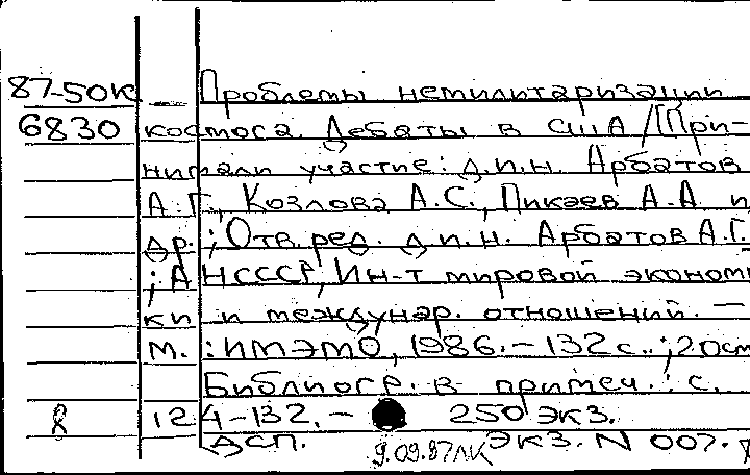 87-50к Проблемы немилитаризации
6830 космоса. Дебаты в США /[При-
нимали участие: д.и.н. Арбатов
А.Г., Козлова А.С., Пикаев А.А. и
др.; Отв. ред. д.и.н. Арбатов А.Г.
; АН СССР, Ин-т мировой экономи
ки и междунар. отношений. —
М. : ИМЭМО, 1986. – 132 с.
Библиогр. в примеч.: с.
124-132. – 250 экз.
ДСП. 9.09.87 ЭКЗ. N 007.